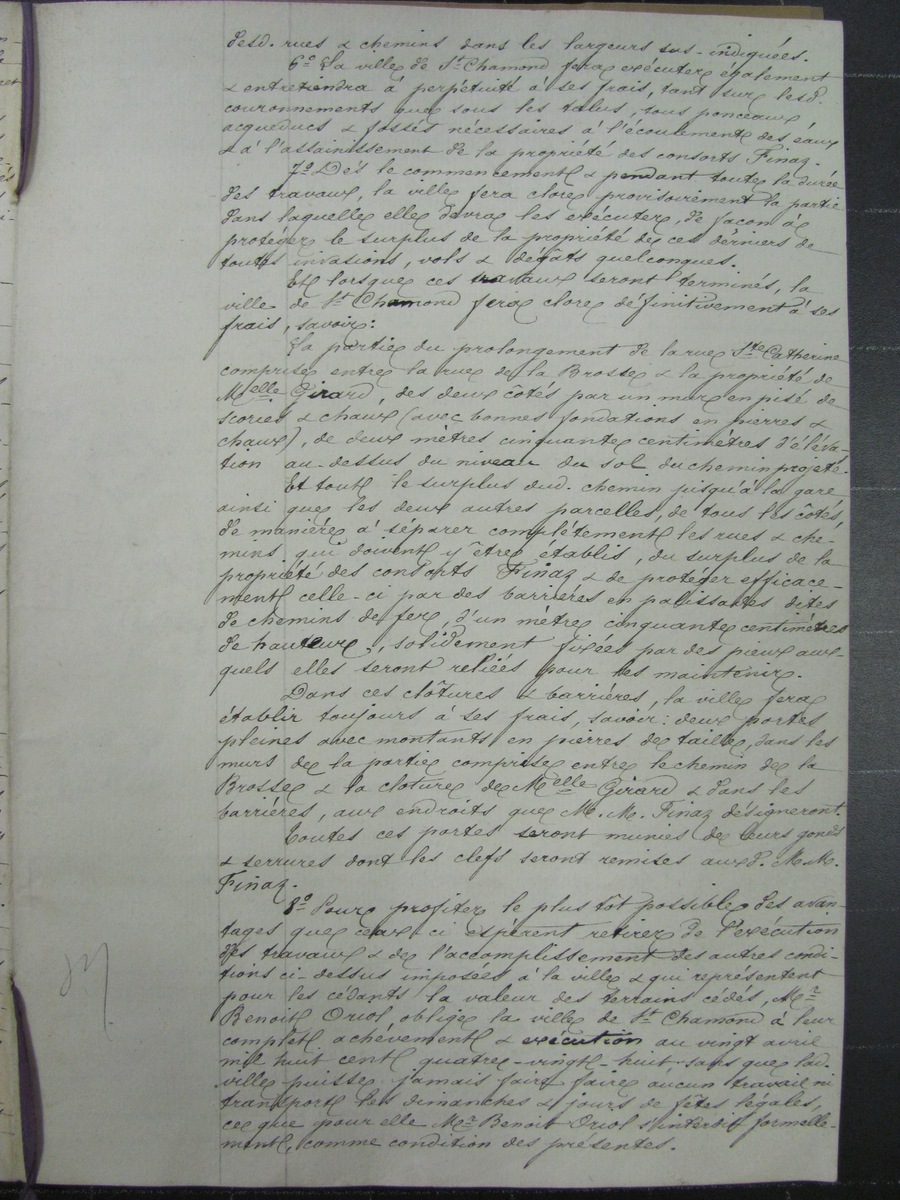 desd. rues & chemins dans les largeurs sus-indiquées.
6º La ville de St Chamond fera exécuter également
& entretiendra à perpétuité à ses frais, tant sur lesd.
couronnements que sous les talus, tous ponceaux
acqueducs & fossés nécessaires à l'écoulement des eaux
& à l'assainissement de la propriété des consorts Finaz.
7º Dès le commencement & pendant toute la durée
des travaux, la ville fera clore provisoirement la partie
dans laquelle elle devra les exécuter, de façon à
protéger le surplus de la propriété de ces derniers de
toutes invasions, vols & dégâts quelconques.
Et lorsque ces travaux seront terminés, la
ville de St Chamond fera clore définitivement à ses
frais, savoir:
La partie du prolongement de la rue Ste Catherine
comprise entre la rue de la Brosse & la propriété de
Melle Girard, des deux côtés par un mur en pisé de
scories & chaux (avec bonnes fondations en pierres &
chaux), de deux mètres cinquante centimètres d'éléva-
tion au-dessus du niveau du sol du chemin projeté.
Et tout le surplus dud. chemin jusqu'à la gare
ainsi que les deux autres parcelles, de tous les côtés,
de manière à séparer complètement les rues & che-
mins qui doivent y être établis, du surplus de la
propriété des consorts Finaz & de protéger efficace-
ment celle-ci par des barrières en palissades dites
de chemins de fer, d'un mètre cinquante centimètres
de hauteur, solidement fixées par des pieux aux-
quels elles seront reliées pour les maintenir.
Dans ces clôtures & barrières, la ville fera
établir toujours à ses frais, savoir: deux portes
pleines avec montants en pierres de taille, dans les
murs de la partie comprise entre le chemin de la
Brosse & la cloture de Melle Girard & dans les
barrières, aux endroits que M.M. Finaz désigneront.
Toutes ces portes seront munies de leurs gonds
& serrures dont les clefs seront remises auxd. M.M.
Finaz.
8º Pour profiter le plus tôt possible des avan-
tages que ceux-ci espèrent retirer de l'exécution
des travaux & de l'accomplissement des autres condi-
tions ci-dessus imposées à la ville & qui représentent
pour les cédants la valeur des terrains cédés, Mr
Benoit Oriol oblige la ville de St Chamond à leur
complet achèvement & exécution au vingt avril
mil huit cent quatre-vingt-huit, sans que lad.
ville puisse jamais faire faire aucun travail ni
transport les dimanches & jours de fêtes légales,
ce que pour elle Mr Benoit Oriol s'interdit formelle-
ment, comme condition des présentes.